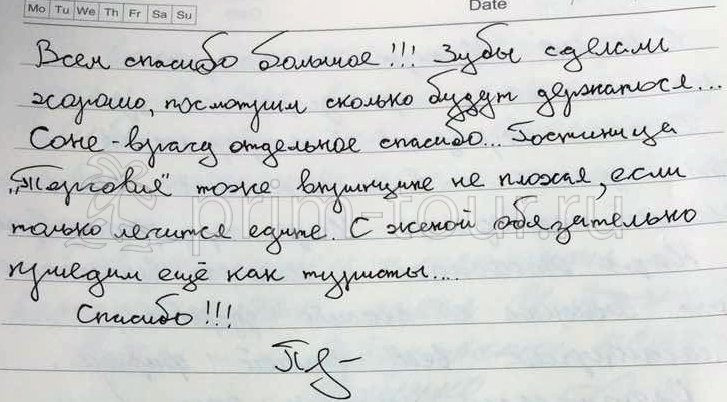 Mo Tu We Th Fr Sa Su
Date
Всем спасибо большое!!! Зубы сделали
хорошо, посмотрим сколько будут держаться...
Соне-врачу отдельное спасибо... Гостиница
"Торговия" тоже впринципе не плохая, если
только лечится едите. С женой обязательно
приедим ещё как туристы....
Спасибо!!!
prim-tour.ru